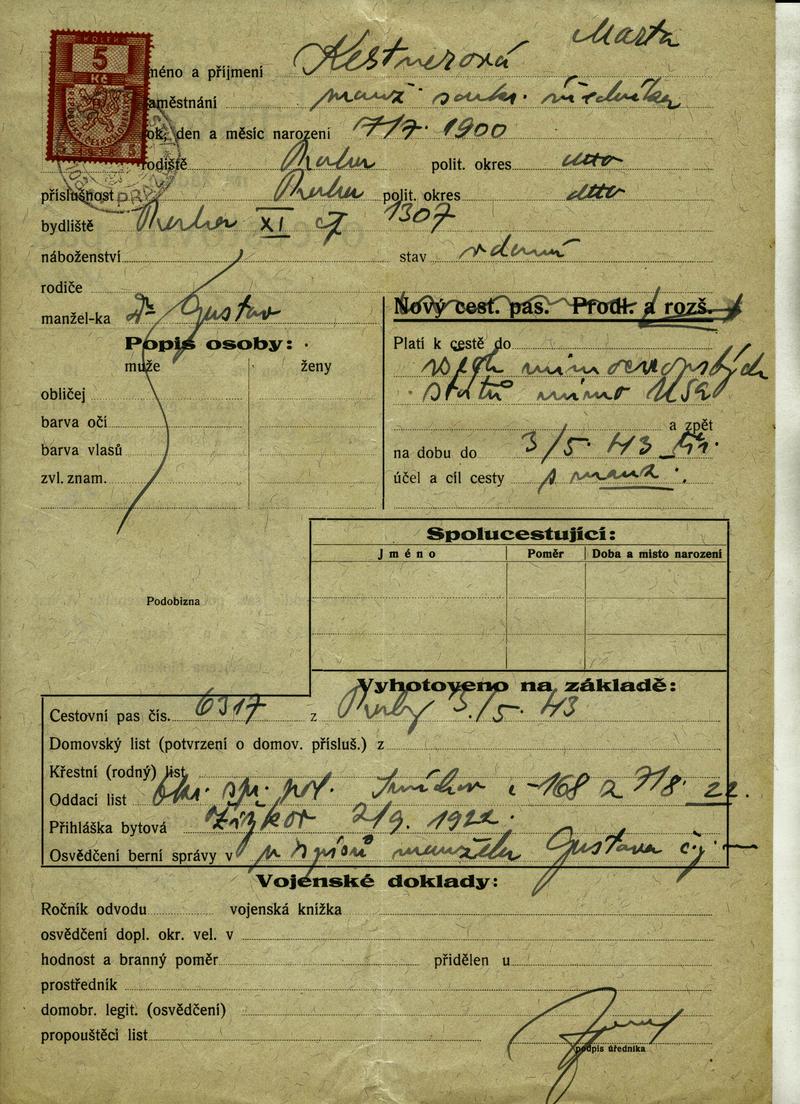 KOLEK
5
Kč
Marta
jméno a příjmení Kestnerová
zaměstnání
rok, den a měsíc narození 7/7. 1900
rodiště Praha polit. okres
příslušnost Praha polit. okres
bydliště Praha XI čj 1307
náboženství stav vdaná
rodiče
manžel-ka Dr Gustav
Nový cest. pas. Prodl. a rozš.
Popis osoby:
muže ženy
obličej
barva očí
barva vlasů
zvl. znam.
Platí k cestě do
všech mimoevropských
států mimo USA
a zpět
na dobu do 3/5. 43
účel a cíl cesty
Podobizna
Spolucestující:
Jméno Poměr Doba a místo narození
Vyhotoveno na základě:
Cestovní pas čís. 6317 z Prahy 3./5. 43
Domovský list (potvrzení o domov. přísluš.) z
Křestní (rodný) list
Oddací list Smíchov 168 7/8. 22.
Přihláška bytová Žižkov 2/9. 1922.
Osvědčení berní správy v manžela Gustava čj
Vojenské doklady:
Ročník odvodu vojenská knížka
osvědčení dopl. okr. vel. v
hodnost a branný poměr přidělen u
prostředník
domobr. legit. (osvědčení)
propouštěcí list
podpis úředníka